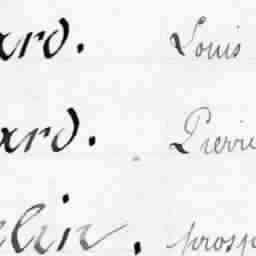 ard. Louis
ard. Pierre
elin. prosp